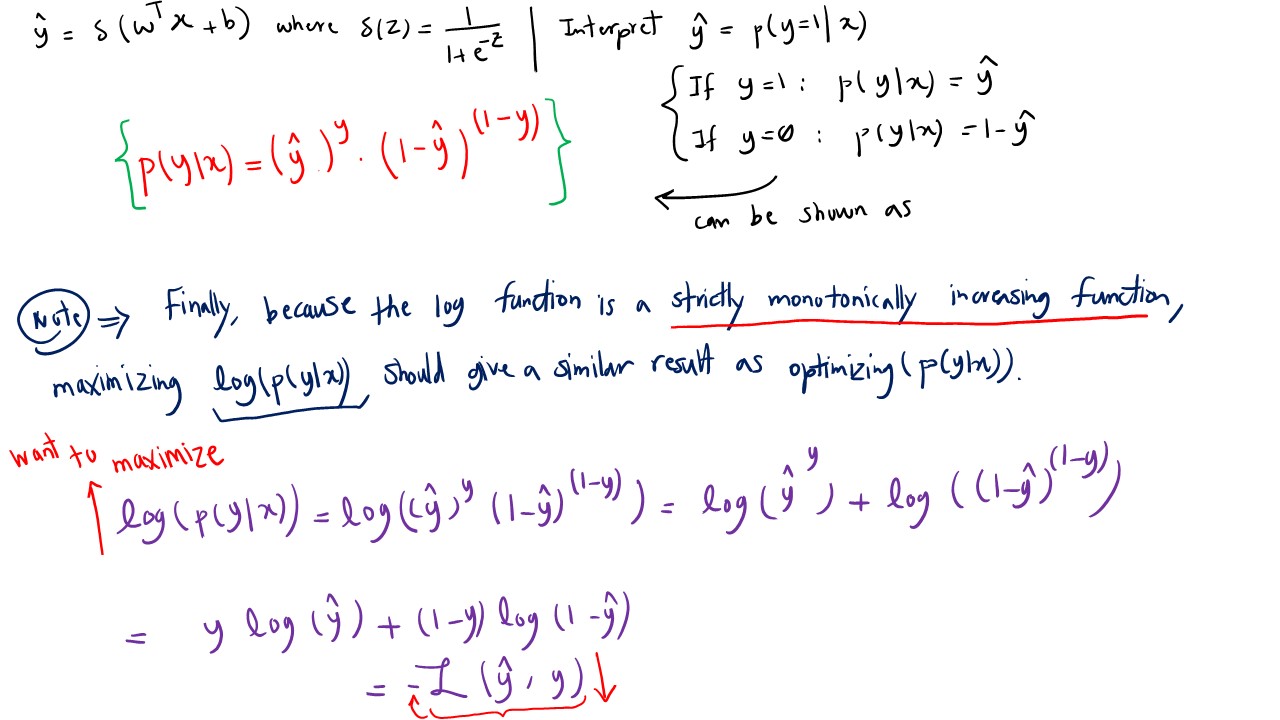 ŷ = δ(wᵀx + b) where δ(z) = 1 / (1 + e^{-z}) | Interpret ŷ = p(y=1|x)
{ If y=1 : p(y|x) = ŷ
If y=0 : p(y|x) = 1-ŷ
{ p(y|x) = (ŷ)^y · (1-ŷ)^{(1-y)} }
← can be shown as
Note ⇒ Finally, because the log function is a strictly monotonically increasing function,
maximizing log(p(y|x)) should give a similar result as optimizing (p(y|x)).
want to maximize
↑ log(p(y|x)) = log((ŷ)^y (1-ŷ)^{(1-y)}) = log(ŷ^y) + log((1-ŷ)^{(1-y)})
= y log(ŷ) + (1-y) log(1-ŷ)
= -ℒ(ŷ, y) ↓